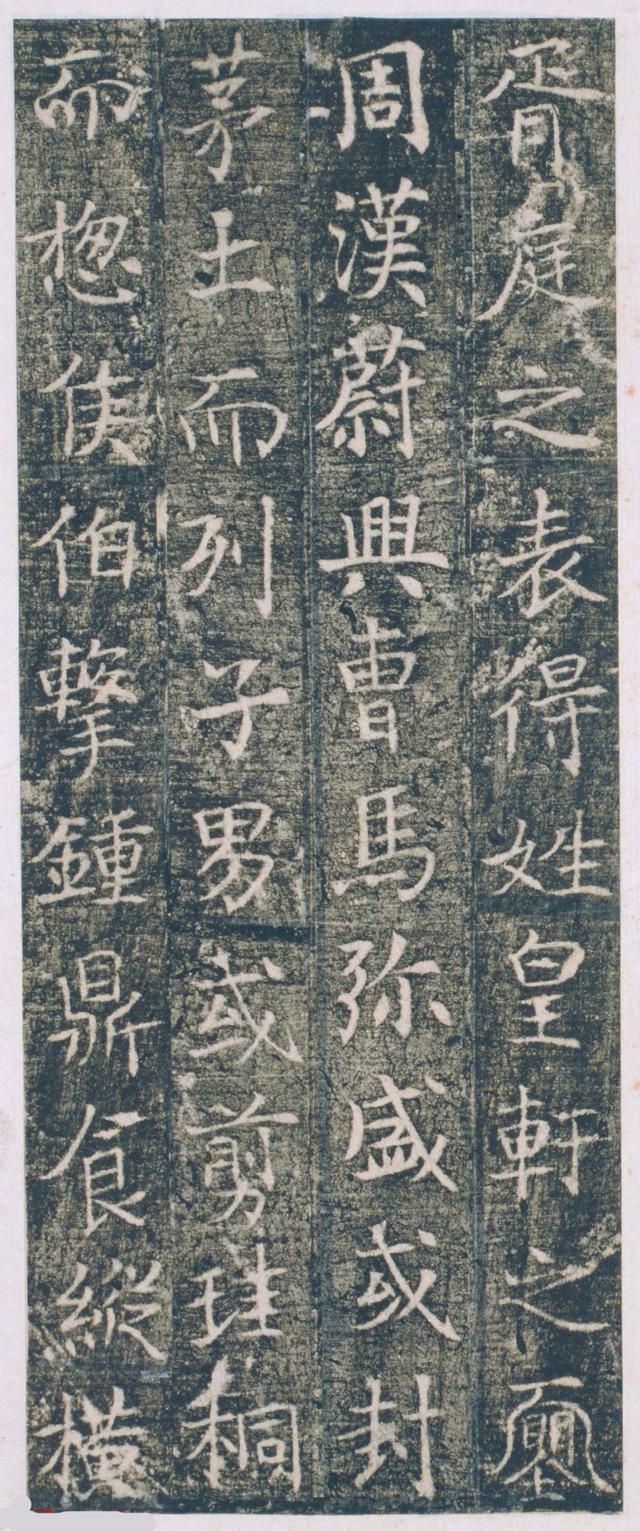 胥庭之表得姓皇軒之
周漢蔚興曹馬弥盛或封
茅土而列子男或剪珪桐
而揔侯伯擊鍾鼎食縱橫